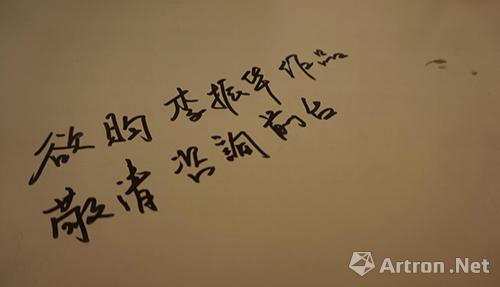 欲购李振华作品
敬请咨询前台
Artron.Net